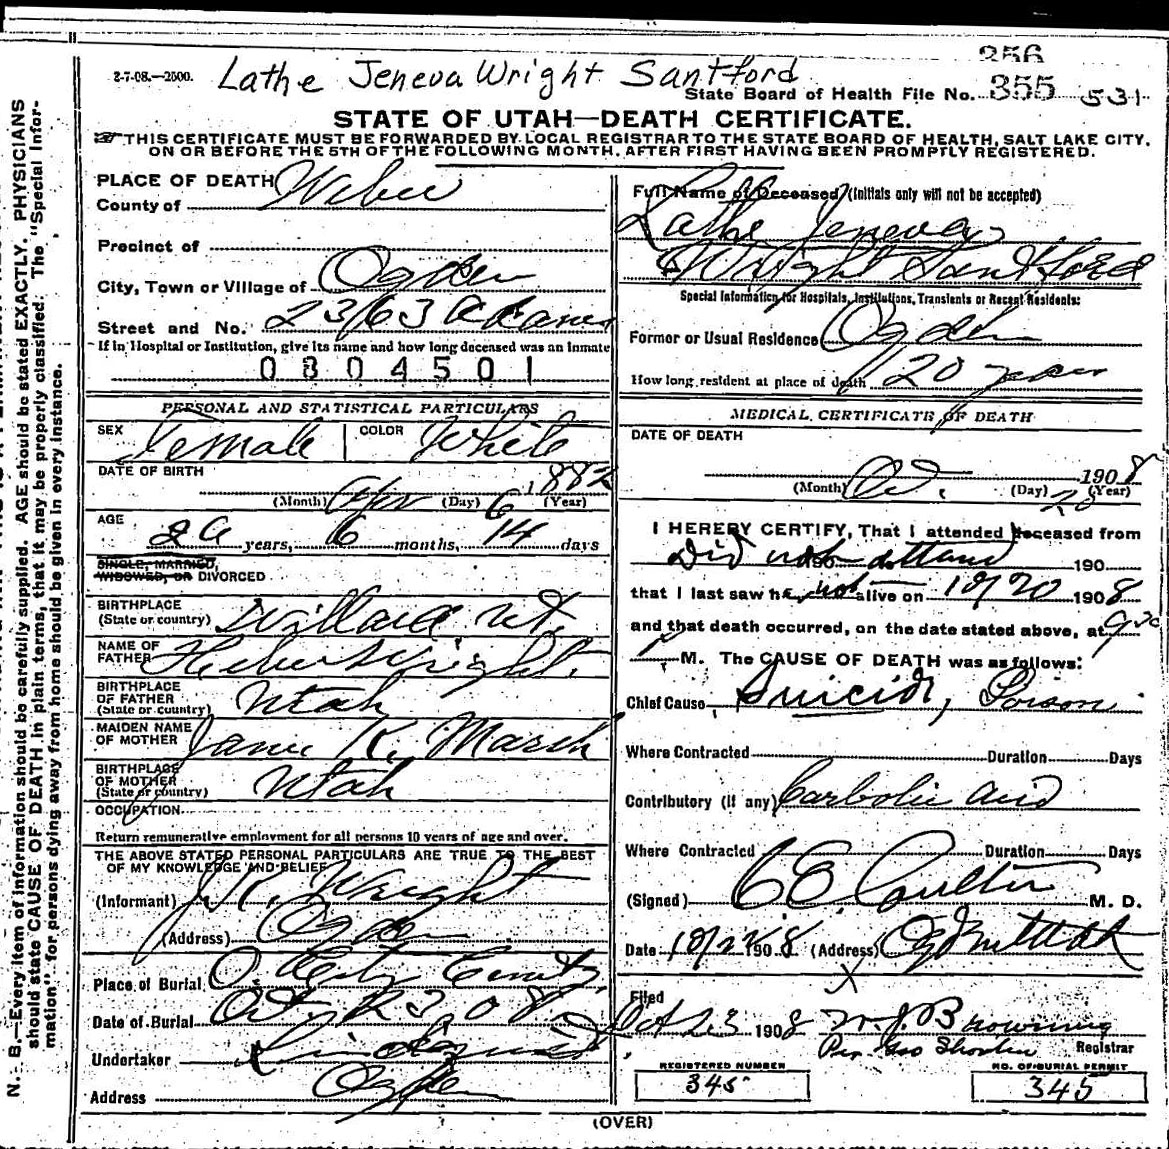 356
3-7-08.—2500. Lathe Jeneva Wright Santford
State Board of Health File No. 355 531
STATE OF UTAH—DEATH CERTIFICATE.
THIS CERTIFICATE MUST BE FORWARDED BY LOCAL REGISTRAR TO THE STATE BOARD OF HEALTH, SALT LAKE CITY,
ON OR BEFORE THE 5TH OF THE FOLLOWING MONTH, AFTER FIRST HAVING BEEN PROMPTLY REGISTERED.
PLACE OF DEATH
County of Weber
Precinct of
City, Town or Village of Ogden
Street and No. 2363 Adams
If in Hospital or Institution, give its name and how long deceased was an inmate
0304501
PERSONAL AND STATISTICAL PARTICULARS
SEX Female COLOR White
DATE OF BIRTH
Apr 6 1882
(Month) (Day) (Year)
AGE
26 years, 6 months, 14 days
SINGLE, MARRIED,
WIDOWED, OR DIVORCED
BIRTHPLACE
(State or country) Willard Ut.
NAME OF
FATHER Heber Wright.
BIRTHPLACE
OF FATHER
(State or country) Utah
MAIDEN NAME
OF MOTHER Jane K. Marsh
BIRTHPLACE
OF MOTHER
(State or country) Utah
OCCUPATION
Return remunerative employment for all persons 10 years of age and over.
THE ABOVE STATED PERSONAL PARTICULARS ARE TRUE TO THE BEST
OF MY KNOWLEDGE AND BELIEF
(Informant) Wright
(Address) Ogden
Place of Burial O. City
Date of Burial Oct. 23, 08
Undertaker Lindquist
Address Ogden
Full Name of Deceased (Initials only will not be accepted)
Lathe Jeneva
Wright Santford
Special Information for Hospitals, Institutions, Transients or Recent Residents:
Former or Usual Residence Ogden
How long resident at place of death 20 years
MEDICAL CERTIFICATE OF DEATH
DATE OF DEATH
Oct. 20 1908
(Month) (Day) (Year)
I HEREBY CERTIFY, That I attended deceased from
Did not attend 190
that I last saw h not alive on 10/20 1908
and that death occurred, on the date stated above, at 9
M. The CAUSE OF DEATH was as follows:
Chief Cause Suicide, Poison
Where Contracted Duration Days
Contributory (if any) Carbolic acid
Where Contracted Duration Days
(Signed) Coulter M. D.
Date 10/22 1908 (Address) Ogden Utah
Filed
Oct 23 1908 W. J. Browning
Per. Geo Registrar
REGISTERED NUMBER
345
NO. OF BURIAL PERMIT
345
(OVER)
N. B.—Every item of information should be carefully supplied. AGE should be stated EXACTLY. PHYSICIANS
should state CAUSE OF DEATH in plain terms, that it may be properly classified. The "Special Infor-
mation" for persons dying away from home should be given in every instance.